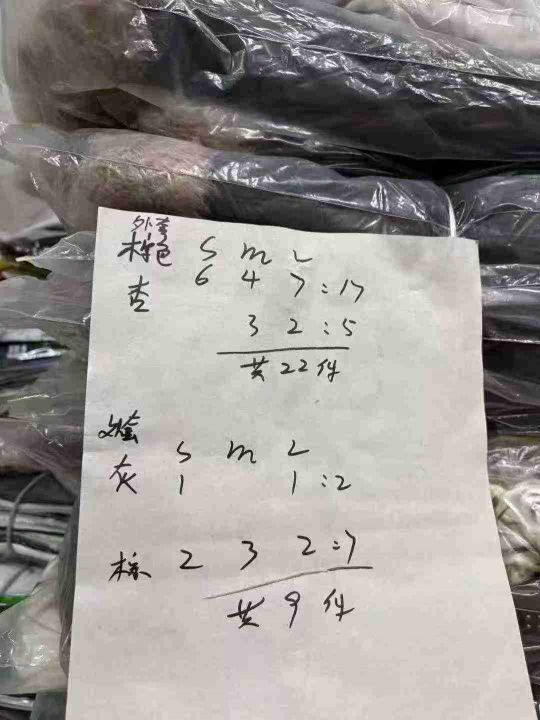 外套
棕色 S m L
杏 6 4 7:17
3 2:5
共22件
S m L
灰 1 1:2
棕 2 3 2:7
共9件